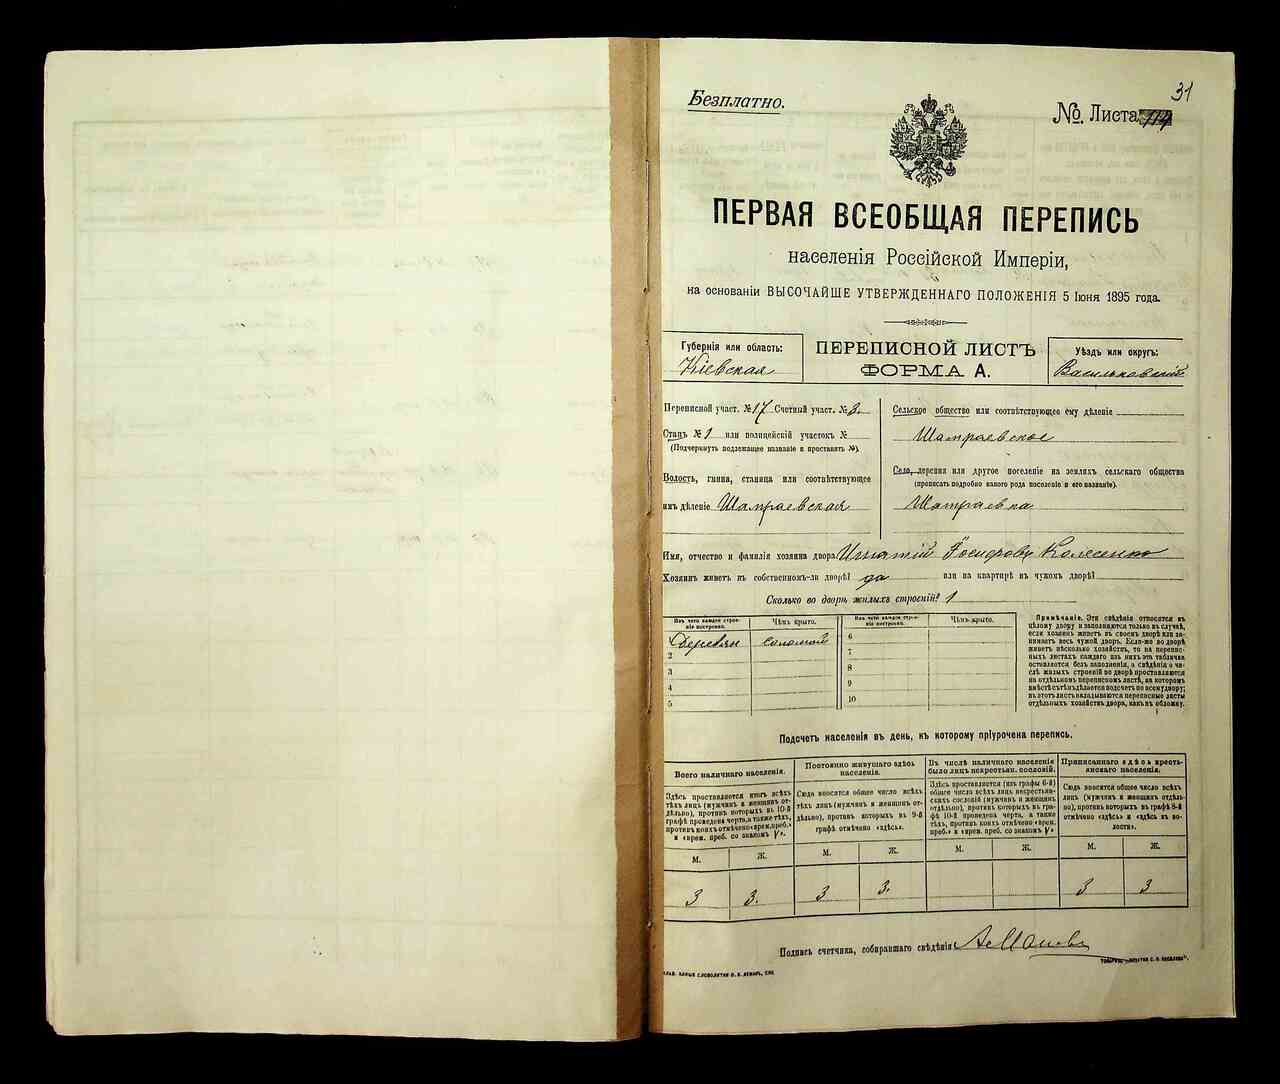 31
Безплатно.
№. Листа 114
ПЕРВАЯ ВСЕОБЩАЯ ПЕРЕПИСЬ
населенія Россійской Имперіи,
на основаніи ВЫСОЧАЙШЕ УТВЕРЖДЕННАГО ПОЛОЖЕНІЯ 5 Іюня 1895 года.
Губернія или область:
Кіевская
ПЕРЕПИСНОЙ ЛИСТЪ
ФОРМА А.
Уѣздъ или округъ:
Васильковскій
Переписной участ. № 17 Счетный участ. № 3.
Станъ № 1 или полицейскій участокъ №
(Подчеркнуть подлежащее названіе и проставить №).
Волость, гмина, станица или соотвѣтствующее
имъ дѣленіе Шамраевская
Сельское общество или соотвѣтствующее ему дѣленіе
Шамраевское
Село, деревня или другое поселеніе на земляхъ сельскаго общества
(прописать подробно какого рода поселеніе и его названіе).
Шамраевка
Имя, отчество и фамилія хозяина двора Игнатій
Хозяинъ живетъ въ собственномъ-ли дворѣ? да или на квартирѣ въ чужомъ дворѣ?
Сколько во дворѣ жилыхъ строеній? 1
Изъ чего каждое строеніе построено.
Чѣмъ крыто.
Изъ чего каждое строеніе построено.
Чѣмъ крыто.
Деревян соломой
2
3
4
5
6
7
8
9
10
Примѣчаніе. Эти свѣдѣнія относятся къ
цѣлому двору и заполняются только въ случаѣ,
если хозяинъ живетъ въ своемъ дворѣ или занимаетъ
весь чужой дворъ. Если-же во дворѣ
живетъ нѣсколько хозяйствъ, то на переписныхъ
листахъ каждаго изъ нихъ эта табличка
оставляется безъ заполненія, а свѣдѣнія о числѣ
жилыхъ строеній во дворѣ проставляются
на отдѣльномъ переписномъ листѣ, на которомъ
вмѣстѣ съ тѣмъ дѣлается подсчетъ по всему двору;
въ этотъ листъ вкладываются переписные листы
отдѣльныхъ хозяйствъ двора, какъ въ обложку.
Подсчетъ населенія въ день, къ которому пріурочена перепись.
Всего наличнаго населенія.
Здѣсь проставляется итогъ всѣхъ
тѣхъ лицъ (мужчинъ и женщинъ отдѣльно),
противъ которыхъ въ 10-й
графѣ проведена черта, а также тѣхъ,
противъ коихъ отмѣчено «врем. преб.»
и «врем. преб. со знакомъ V».
Постоянно живущаго здѣсь
населенія.
Сюда вносится общее число всѣхъ
тѣхъ лицъ (мужчинъ и женщинъ отдѣльно),
противъ которыхъ въ 9-й
графѣ отмѣчено «здѣсь».
Въ числѣ наличнаго населенія
было лицъ некрестьян. сословій.
Здѣсь проставляется (изъ графы 6-й)
общее число всѣхъ лицъ некрестьянскихъ
сословій (мужчинъ и женщинъ
отдѣльно), противъ которыхъ въ графѣ
10-й проведена черта, а также
тѣхъ, противъ коихъ отмѣчено «врем.
преб.» и «врем. преб. со знакомъ V»
Приписаннаго здѣсь крестьянскаго
населенія.
Сюда вносится общее число всѣхъ
лицъ (мужчинъ и женщинъ отдѣльно),
противъ которыхъ въ графѣ 8-й
отмѣчено «здѣсь» и «здѣсь въ волости».
М. Ж. М. Ж. М. Ж. М. Ж.
3 3. 3 3. 3 3
Подпись счетчика, собиравшаго свѣдѣнія